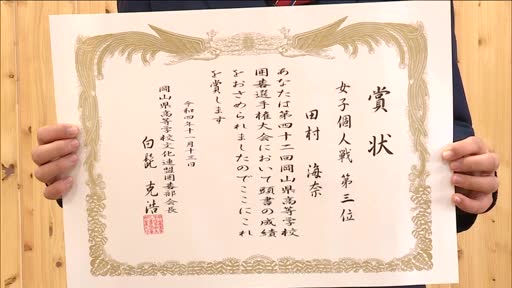 賞状
女子個人戦 第三位
田村 海奈
あなたは第四十二回岡山県高等学校
囲碁選手権大会において頭書の成績
をおさめられましたのでここにこれ
を賞します
令和四年十一月十三日
岡山県高等学校文化連盟囲碁部会長
白髭 克浩